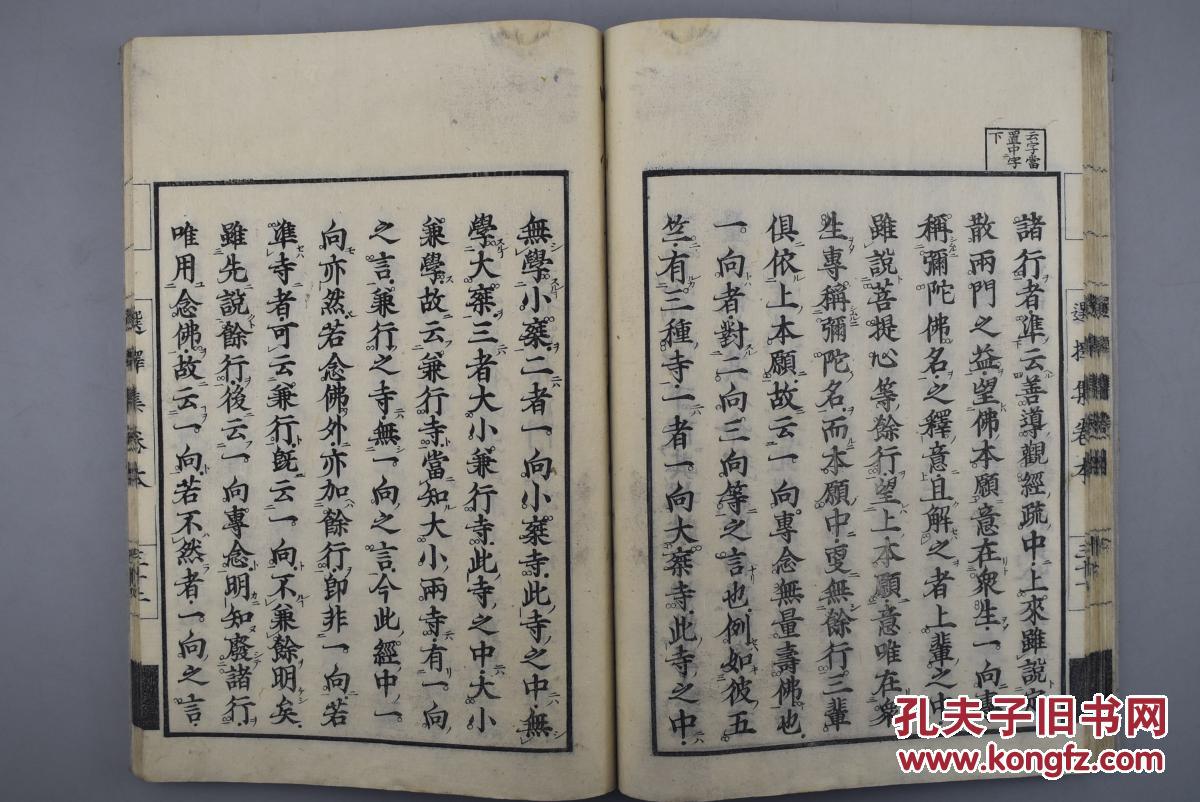 云字當
置中字
下
諸行者準云善導觀經疏中上來雖說定
散兩門之益望佛本願意在衆生一向專
稱彌陀佛名之釋意且解之者上輩之中
雖說菩提心等餘行望上本願意唯在衆
生專稱彌陀名而本願中更無餘行三輩
俱依上本願故云一向專念無量壽佛也
一向者對二向三向等之言也例如彼五
竺有三種寺一者一向大乘寺此寺之中
無學小乘二者一向小乘寺此寺之中無
學大乘三者大小兼行寺此寺之中大小
兼學故云兼行寺當知大小兩寺有一向
之言兼行之寺無一向之言今此經中一
向亦然若念佛外亦加餘行即非一向若
準寺者可云兼行既云一向不兼餘明矣
雖先說餘行後云一向專念明知廢諸行
唯用念佛故云一向若不然者一向之言
選擇集卷本
選擇集卷本
孔夫子旧书网
www.kongfz.com